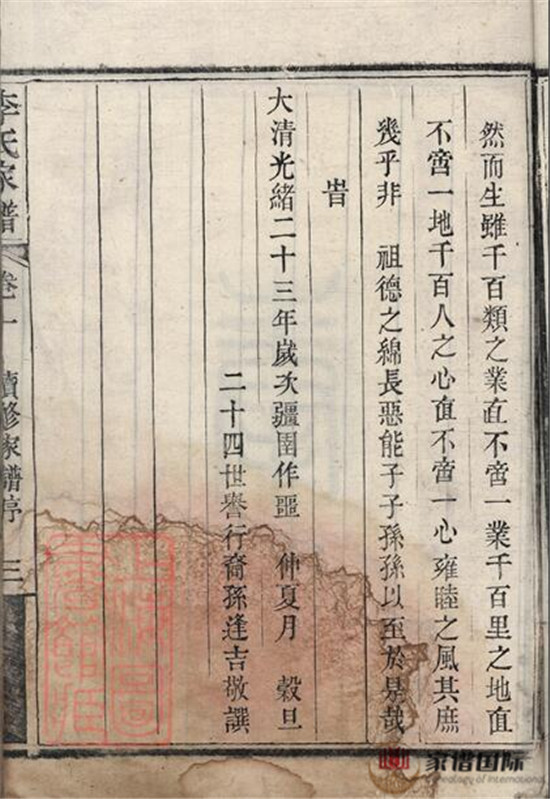 然而生雖千百類之業直不啻一業千百里之地直
不啻一地千百人之心直不啻一心雍睦之風其庶
幾乎非　祖德之綿長惡能子子孫孫以至於是哉
旹
大清光緒二十三年歲次疆圉作噩　仲夏月　穀旦
二十四世譽行裔孫逢吉敬譔
李氏家譜　卷一　續修家譜序　三
家谱国际
Genealogy of International